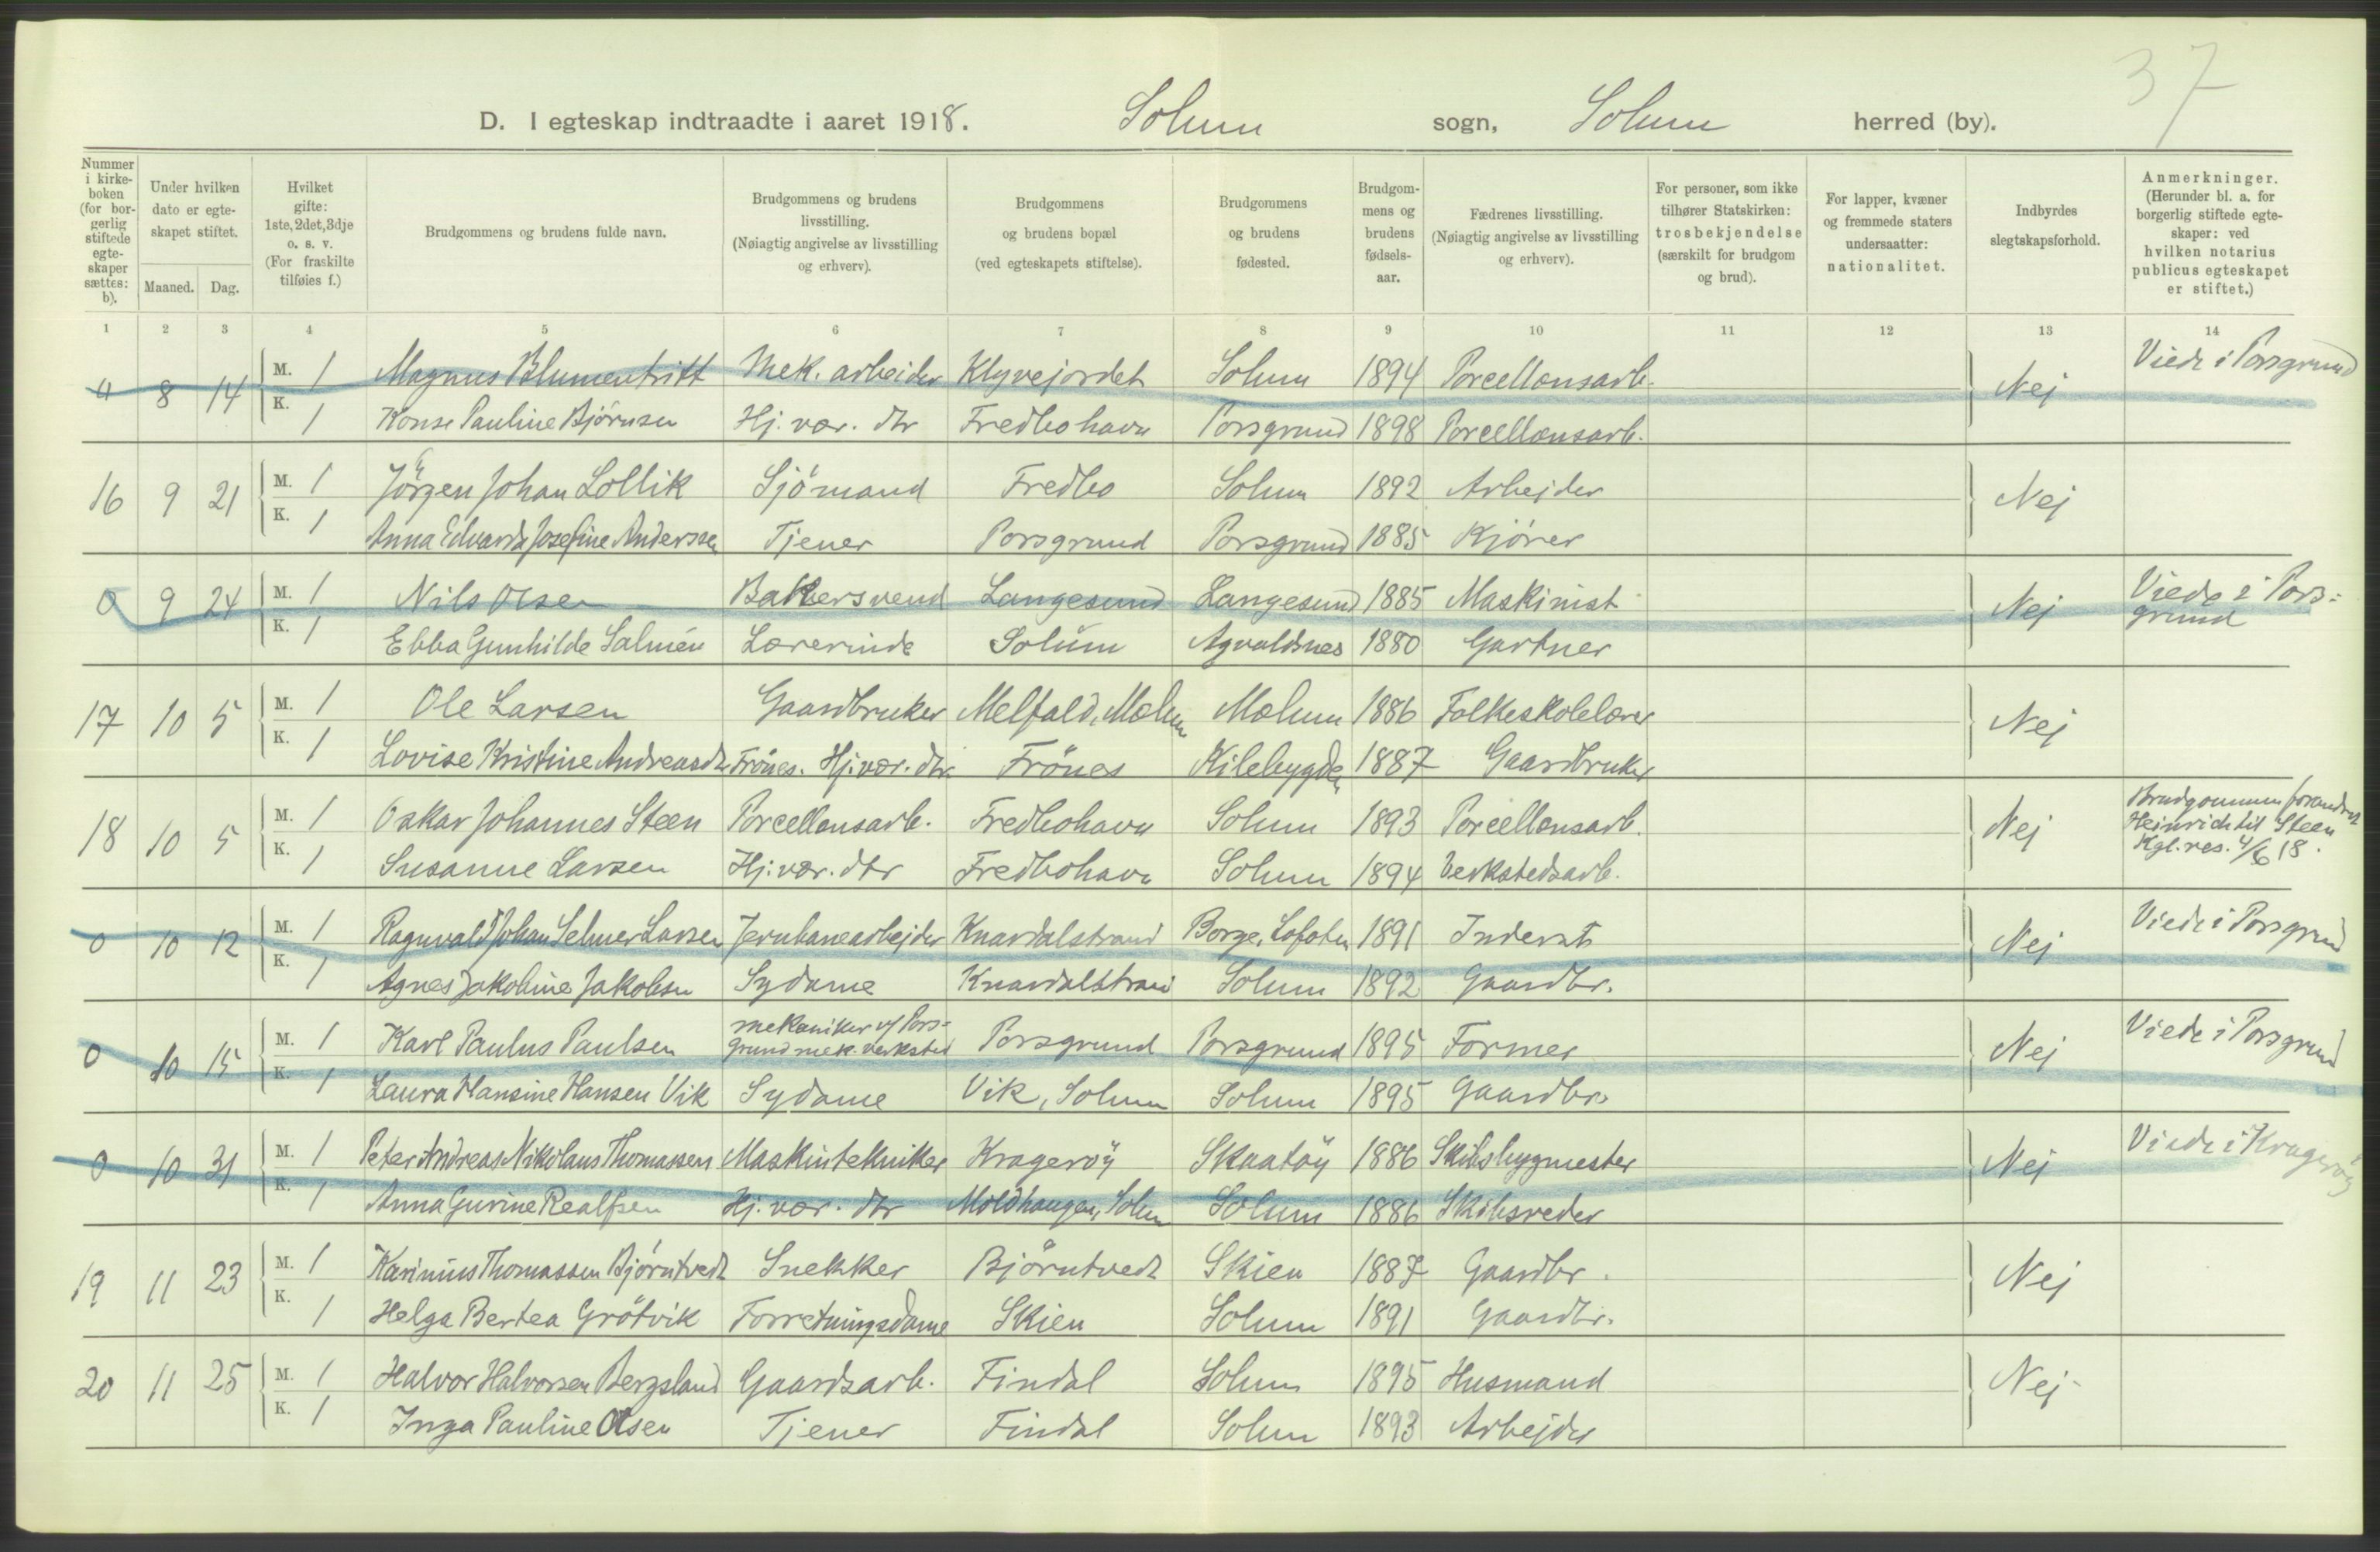 37
D. I egteskap indtraadte i aaret 1918. Solum sogn, Solum herred (by).
Nummer i kirke-boken (for bor-gerlig stiftede egte-skaper sættes: b).
Under hvilken dato er egte-skapet stiftet.
Maaned. Dag.
Hvilket gifte: 1ste, 2det, 3dje o. s. v. (For fraskilte tilføies f.)
Brudgommens og brudens fulde navn.
Brudgommens og brudens livsstilling. (Nøiagtig angivelse av livsstilling og erhverv).
Brudgommens og brudens bopæl (ved egteskapets stiftelse).
Brudgommens og brudens fødested.
Brudgom-mens og brudens fødsels-aar.
Fædrenes livsstilling. (Nøiagtig angivelse av livsstilling og erhverv).
For personer, som ikke tilhører Statskirken: trosbekjendelse (særskilt for brudgom og brud).
For lapper, kvæner og fremmede staters undersaatter: nationalitet.
Indbyrdes slegtskapsforhold.
Anmerkninger. (Herunder bl. a. for borgerlig stiftede egte-skaper: ved hvilken notarius publicus egteskapet er stiftet.)
1 2 3 4 5 6 7 8 9 10 11 12 13 14
8 14 M. 1 Magnus Blumentritt Mek. arbeider Klyvejordet Solum 1894 Porcellænsarb. Nej Viede i Porsgrund
K. 1 Pauline Bjørnsen Hj. vær. dtr Fredbohavn Porsgrund 1898 Porcellænsarb.
16 9 21 M. 1 Jörgen Johan Lollik Sjömand Fredbo Solum 1892 Arbejder Nej
K. 1 Anna Edvarda Josefine Anderssen Tjener Porsgrund Porsgrund 1885 Kjörer
0 9 24 M. 1 Nils Olsen Bakersvend Langesund Langesund 1885 Maskinist Nej Viede i Pors-
grund
K. 1 Ebba Gunhilde Salmén Lærerinde Solum Agvaldsnes 1880 Gartner
17 10 5 M. 1 Ole Larsen Gaardbruker Melfald, Mælum Mælum 1886 Folkeskolelærer Nej
K. 1 Lovise Kristine Andreasdtr Frönes. Hj. vær. dtr. Frönes Kilebygden 1887 Gaardbruker
18 10 5 M. 1 Oskar Johannes Steen Porcellænsarb. Fredbohavn Solum 1893 Porcellænsarb. Nej Brudgommen forandret
Heinrich til Steen
Kgl. res. 4/6 18.
K. 1 Susanne Larsen Hj. vær. dtr Fredbohavn Solum 1894 Verkstedsarb.
0 10 12 M. 1 Ragnvald Johan Selmer Larsen Jernbanearbejder Knardalstrand Borge, Lofoten 1891 Inderst Nej Viede i Porsgrund
K. 1 Agnes Jakobine Jakobsen Sydame Knardalstrand Solum 1892 Gaardbr.
0 10 15 M. 1 Karl Paulus Paulsen mekaniker v/ Pors-
grund mek. verksted Porsgrund Porsgrund 1895 Former Nej Viede i Porsgrund
K. 1 Laura Hansine Hansen Vik Sydame Vik, Solum Solum 1895 Gaardbr.
0 10 31 M. 1 Peter Andreas Nikolaus Thomassen Maskintekniker Kragerøy Skaatøy 1886 Skibsbygmester Nej Viede i Kragerøy
K. 1 Anna Gurine Realfsen Hj. vær. dtr Moldhaugen, Solum Solum 1886 Skibsreder
19 11 23 M. 1 Karinius Thomassen Bjørntvedt Snekker Bjørntvedt Skien 1887 Gaardbr. Nej
K. 1 Helga Bertea Grötvik Forretningsdame Skien Solum 1891 Gaardbr.
20 11 25 M. 1 Halvor Halvorsen Bergsland Gaardsarb. Findal Solum 1895 Husmand Nej
K. 1 Inga Pauline Olsen Tjener Findal Solum 1893 Arbejder